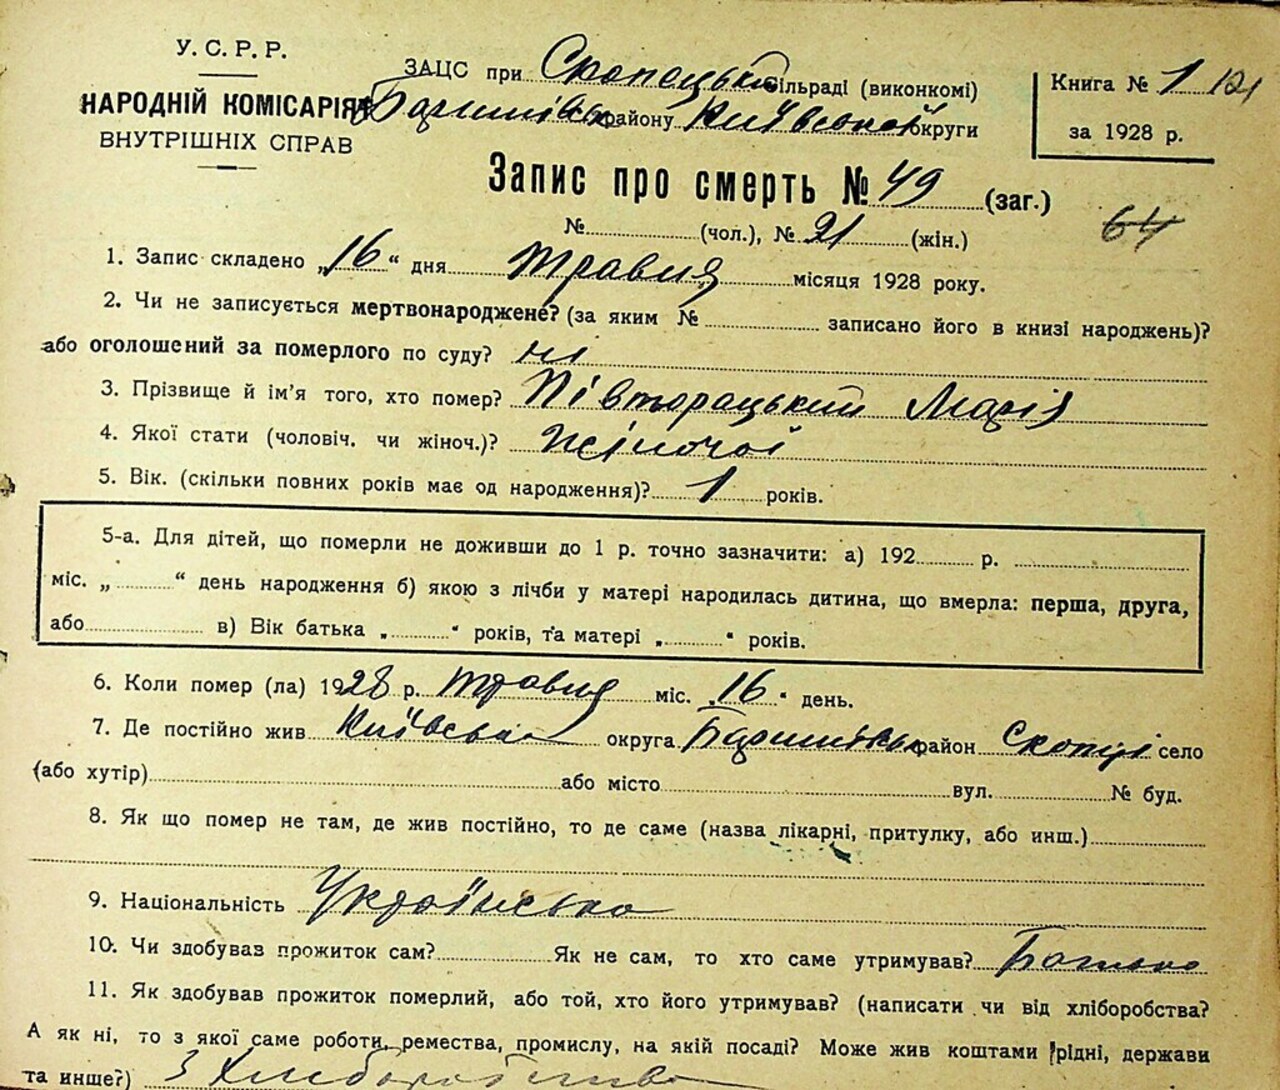 У. С. Р. Р.
НАРОДНІЙ КОМІСАРІЯТ
ВНУТРІШНІХ СПРАВ
ЗАЦС при Скопецькій сільраді (виконкомі)
Баришівськ району Київської округи
Книга № 1
за 1928 р.
Запис про смерть № 49 (заг.)
№ (чол.), № 21 (жін.)
64
1. Запис складено „16“ дня травня місяця 1928 року.
2. Чи не записується мертвонароджене? (за яким № записано його в книзі народжень)?
або оголошений за померлого по суду? ні
3. Прізвище й ім'я того, хто помер? Півторацький Марія
4. Якої стати (чоловіч. чи жіноч.)? жіночої
5. Вік. (скільки повних років має од народження)? 1 років.
5-а. Для дітей, що померли не доживши до 1 р. точно зазначити: а) 192 р.
міс. „ “ день народження б) якою з лічби у матері народилась дитина, що вмерла: перша, друга,
або в) Вік батька „ “ років, та матері „ “ років.
6. Коли помер (ла) 1928 р. травня міс. „16“ день.
7. Де постійно жив Київська округа Баришівськ район Скопці село
(або хутір) або місто вул. № буд.
8. Як що помер не там, де жив постійно, то де саме (назва лікарні, притулку, або инш.)
9. Національність Українська
10. Чи здобував прожиток сам? Як не сам, то хто саме утримував? Батько
11. Як здобував прожиток померлий, або той, хто його утримував? (написати чи від хліборобства?
А як ні, то з якої саме роботи, ремества, промислу, на якій посаді? Може жив коштами рідні, держави
та инше?) З Хліборобства